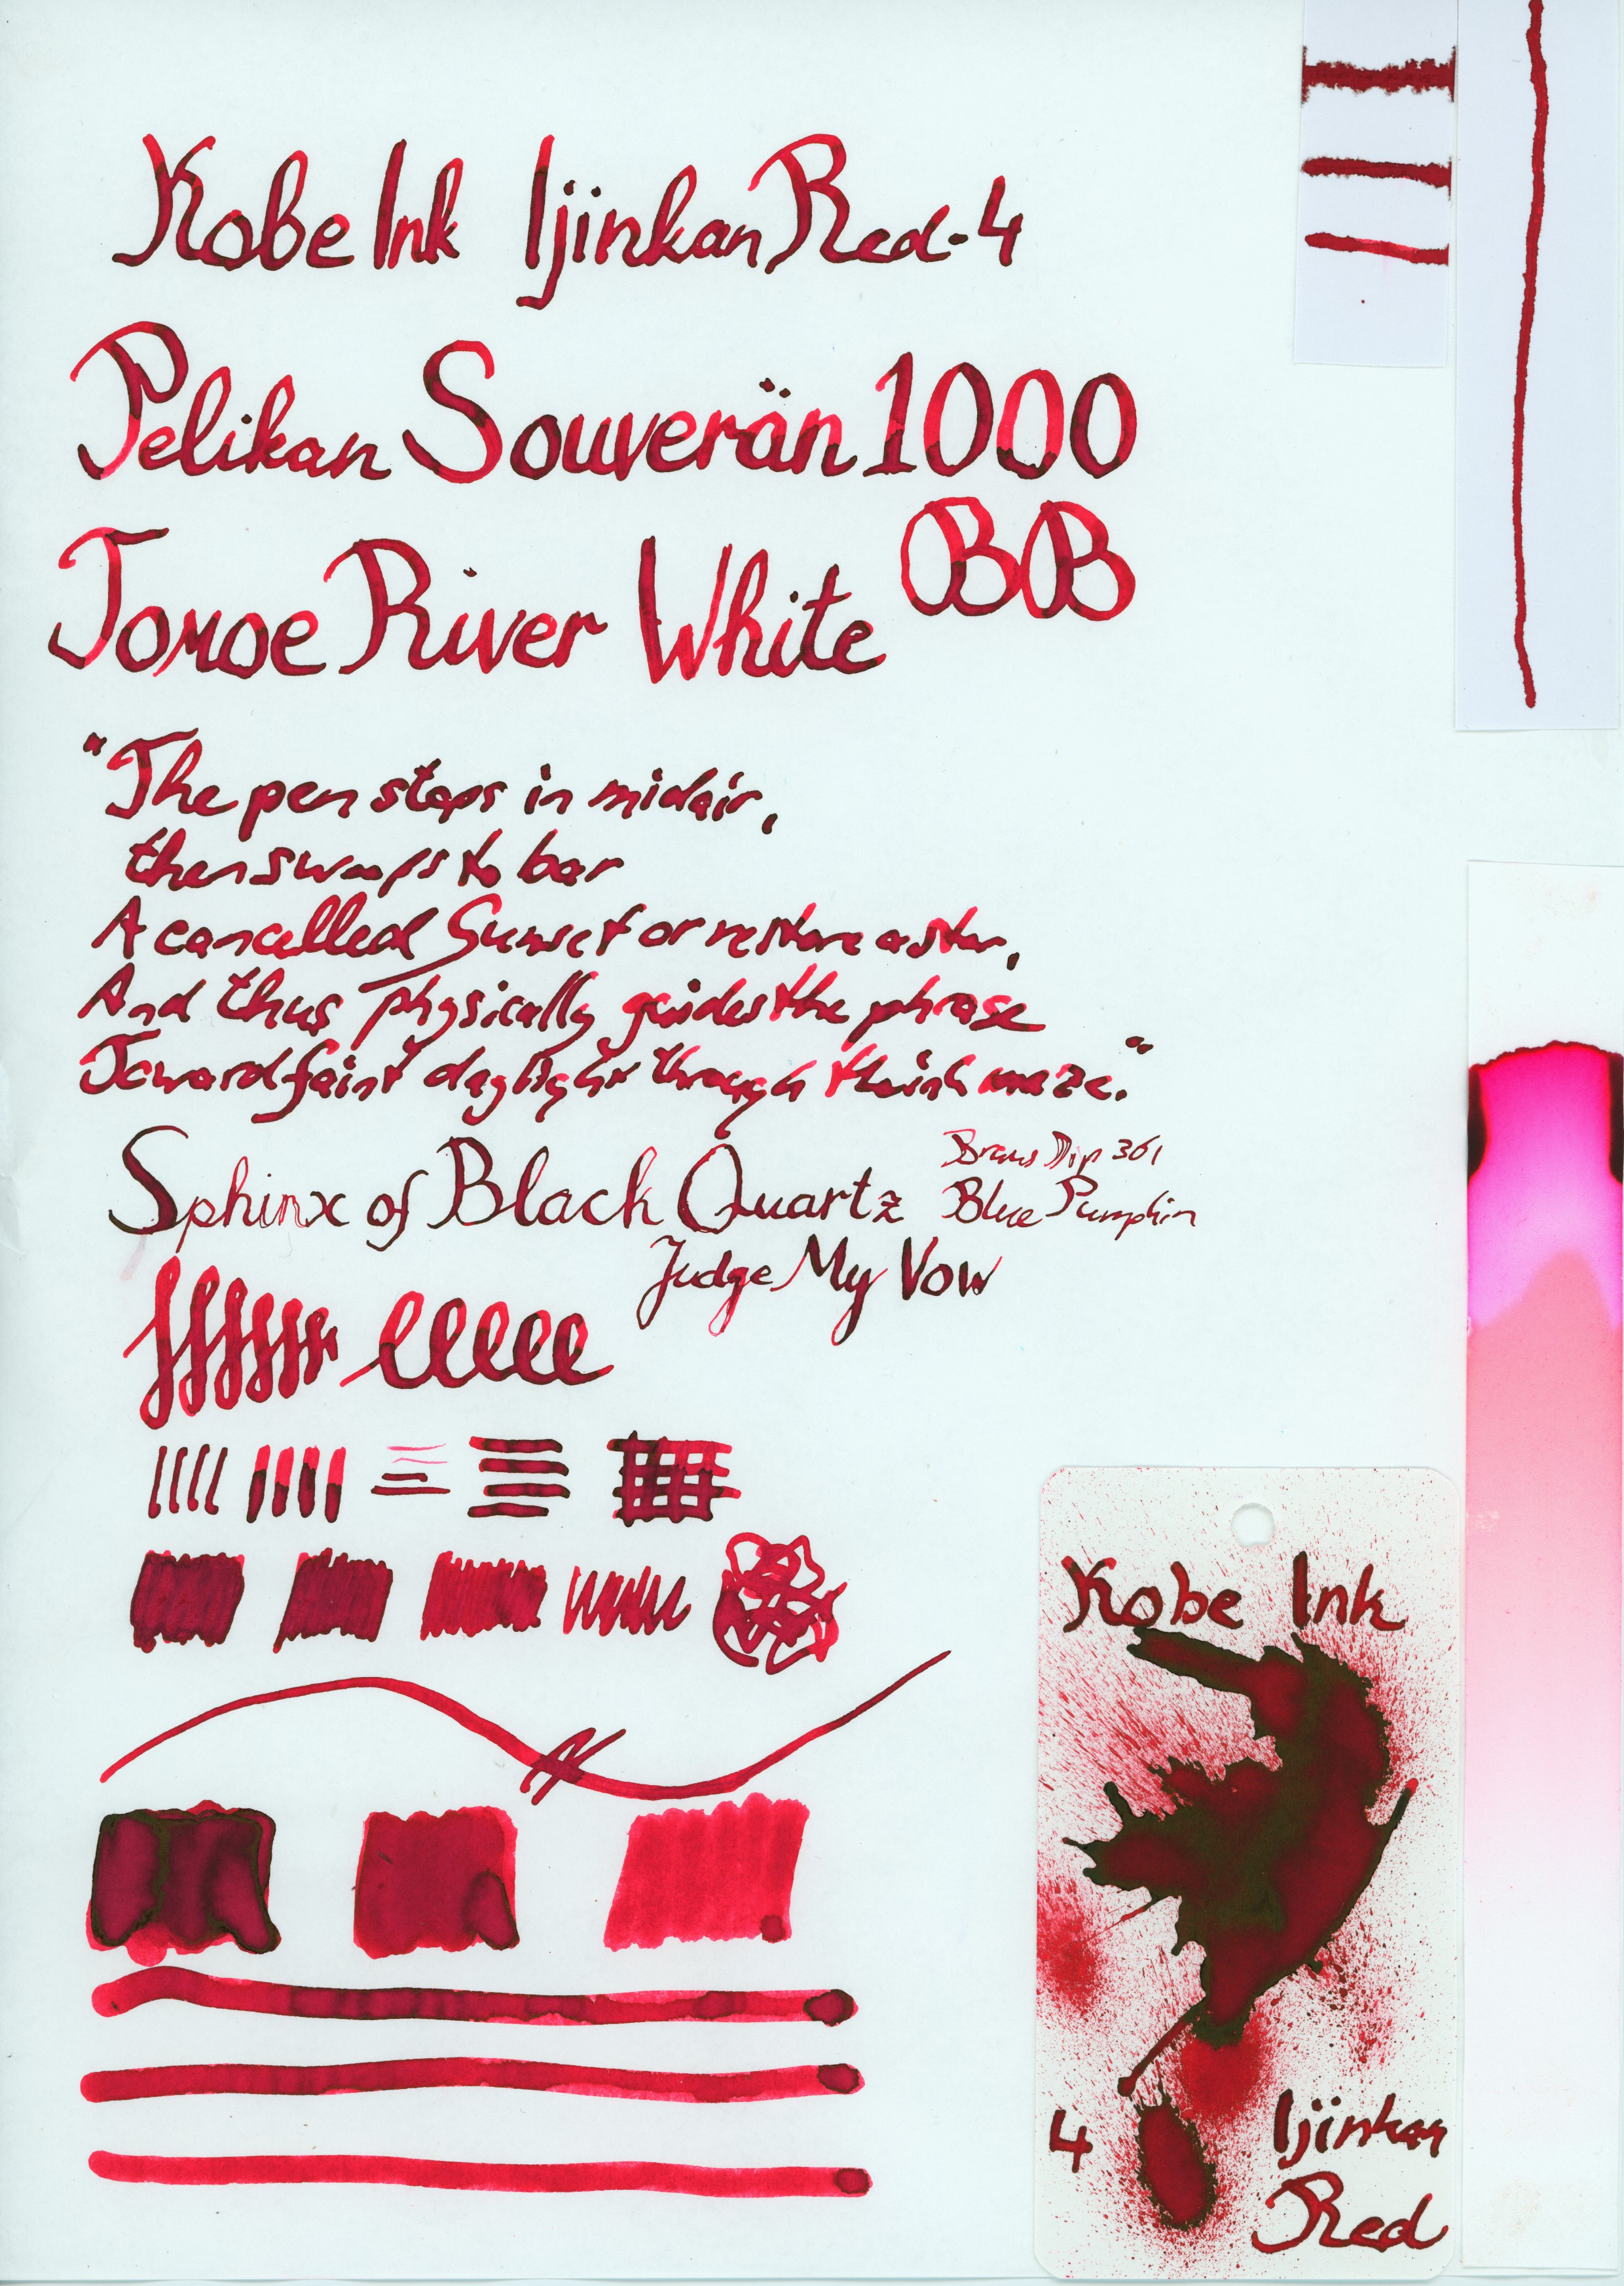 Kobe Ink Ijinkan Red-4
Pelikan Souverän 1000
BB
Tomoe River White
"The pen stops in midair,
then swoops to bar
A cancelled Sunset or restore a star,
And thus physically guides the phrase
Toward faint daylight through maze."
Sphinx of Black Quartz
Judge My Vow
Braus Dip 361
Blue Pumpkin
Kobe Ink
4 Ijinkan
Red